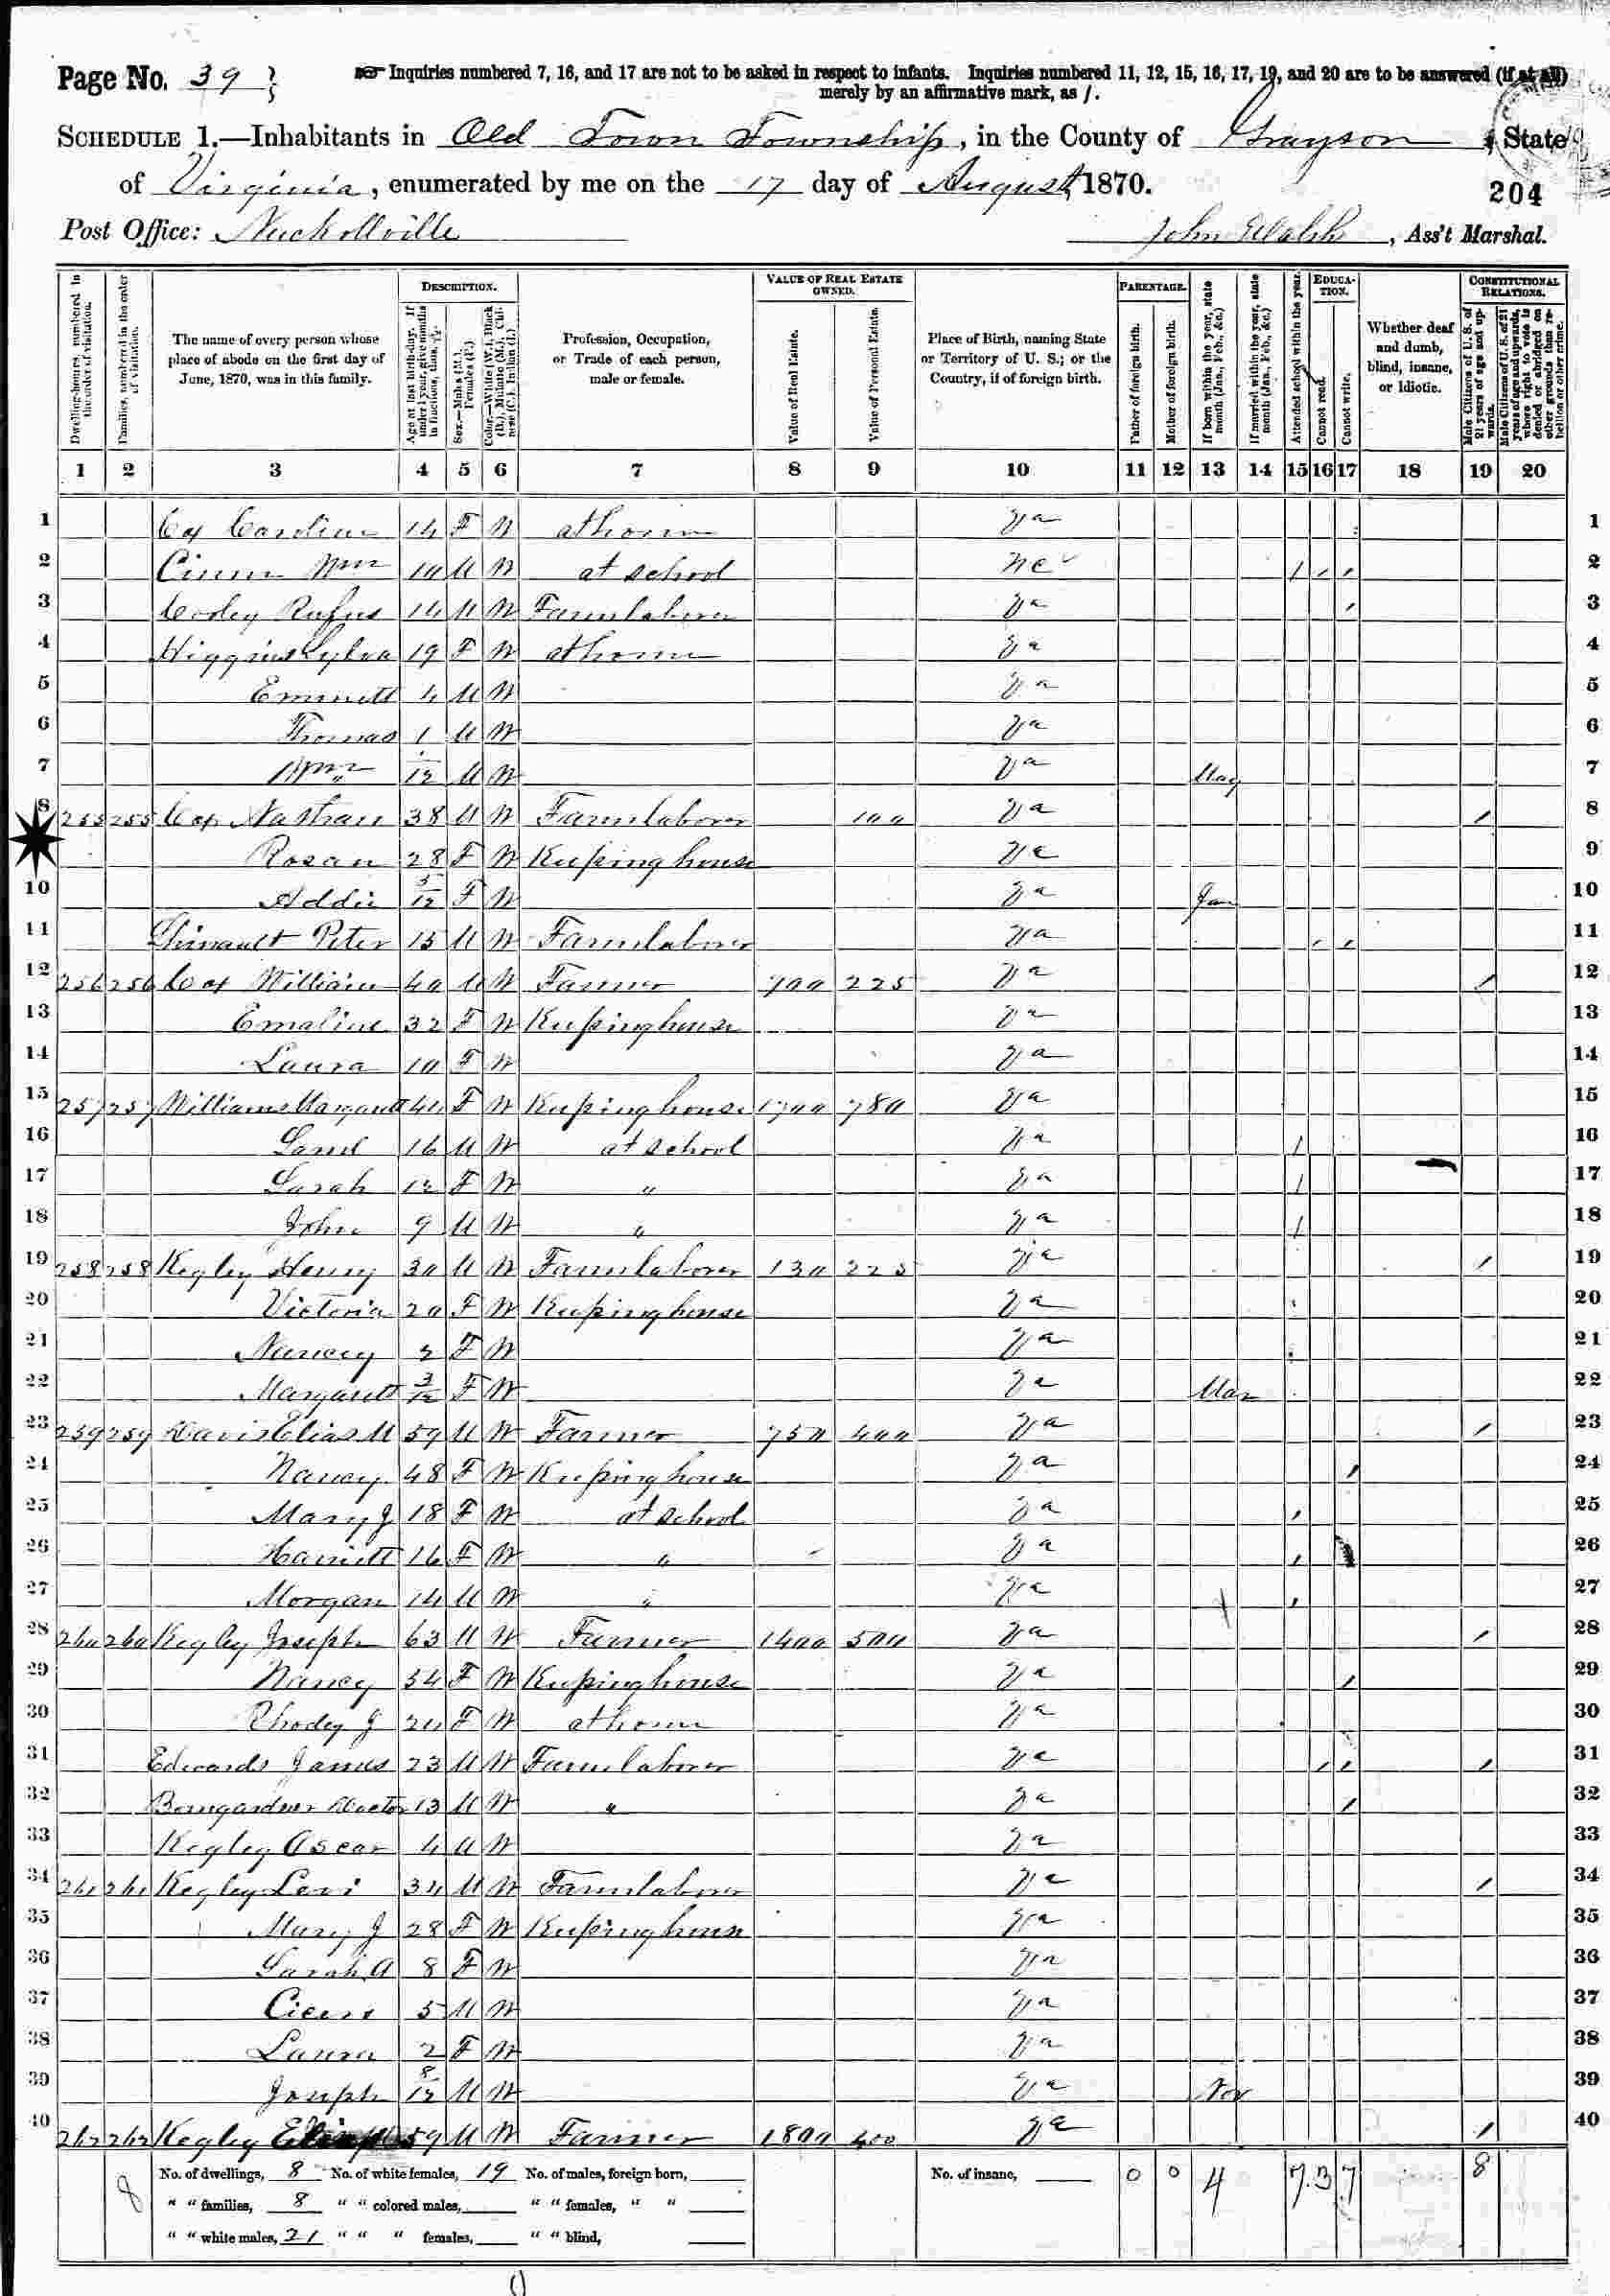 Page No. 39
Inquiries numbered 7, 16, and 17 are not to be asked in respect to infants. Inquiries numbered 11, 12, 15, 16, 17, 19, and 20 are to be answered (if at all)
merely by an affirmative mark, as /.
SCHEDULE 1.—Inhabitants in Old Town Township, in the County of Grayson, State
of Virginia, enumerated by me on the 17 day of August, 1870.
204
Post Office: Nuckollville John Walsh, Ass't Marshal.
Dwelling-houses, numbered in the order of visitation.
Families, numbered in the order of visitation.
The name of every person whose place of abode on the first day of June, 1870, was in this family.
DESCRIPTION.
Age at last birth-day. If under 1 year, give months in fractions, thus, 3/12.
Sex.—Males (M.), Females (F.)
Color.—White (W.), Black (B.), Mulatto (M.), Chinese (C.), Indian (I.)
Profession, Occupation, or Trade of each person, male or female.
VALUE OF REAL ESTATE OWNED.
Value of Real Estate.
Value of Personal Estate.
Place of Birth, naming State or Territory of U. S.; or the Country, if of foreign birth.
PARENTAGE.
Father of foreign birth.
Mother of foreign birth.
If born within the year, state month (Jan., Feb., &c.)
If married within the year, state month (Jan., Feb., &c.)
Attended school within the year.
EDUCATION.
Cannot read.
Cannot write.
Whether deaf and dumb, blind, insane, or idiotic.
CONSTITUTIONAL RELATIONS.
Male Citizens of U. S. of 21 years of age and upwards.
Male Citizens of U. S. of 21 years of age and upwards, where right to vote is denied or abridged on other grounds than rebellion or other crime.
1 2 3 4 5 6 7 8 9 10 11 12 13 14 15 16 17 18 19 20
1 Cox Caroline 14 F W at home Va 1
2 Wm 10 M W at school NC / / / 2
3 Rufus 14 M W Farm laborer Va / 3
4 Higgins 19 F W at home Va 4
5 Emmett 4 M W Va 5
6 Thomas 1 M W Va 6
7 Wm 1/12 M W Va May 7
8 255 255 Cox Nathan 38 M W Farm laborer 100 Va / 8
9 Rosan 28 F W Keeping house Va 9
10 Addie 5/12 F W Va Jan 10
11 Peter 15 M W Farm laborer Va / / 11
12 256 256 Cox William 40 M W Farmer 700 225 Va / 12
13 Emaline 32 F W Keeping house Va 13
14 Laura 10 F W Va 14
15 257 257 Williams Margarett 44 F W Keeping house 1700 780 Va 15
16 Saml 16 M W at school Va / 16
17 Sarah 12 F W " Va / 17
18 John 9 M W " Va / 18
19 258 258 Kegley Henry 30 M W Farm laborer 130 225 Va / 19
20 Victoria 20 F W Keeping house Va 20
21 Nancy 2 F W Va 21
22 Margarett 3/12 F W Va Mar 22
23 259 259 Davis Elias M 59 M W Farmer 750 400 Va / 23
24 Nancy 48 F W Keeping house Va / 24
25 Mary J 18 F W at school Va / 25
26 Harriett 16 F W " Va / 26
27 Morgan 14 M W " Va / 27
28 260 260 Kegley Joseph 63 M W Farmer 1400 500 Va / 28
29 Nancy 54 F W Keeping house Va / 29
30 Rhodey J 24 F W at home Va 30
31 Edwards James 23 M W Farm laborer Va / / / 31
32 Bomgardner 13 M W " Va / 32
33 Kegley Oscar 4 M W Va 33
34 261 261 Kegley Levi 34 M W Farm laborer Va / 34
35 Mary J 28 F W Keeping house Va 35
36 Sarah A 8 F W Va 36
37 Cicero 5 M W Va 37
38 Laura 2 F W Va 38
39 Joseph 8/12 M W Va Nov 39
40 262 262 Kegley 59 M W Farmer 1800 400 Va / 40
8 No. of dwellings, 8 No. of white females, 19 No. of males, foreign born, No. of insane, 0 0 4 7 3 7 8
" " families, 8 " " colored males, " " females, " "
" " white males, 21 " " " females, " " blind,